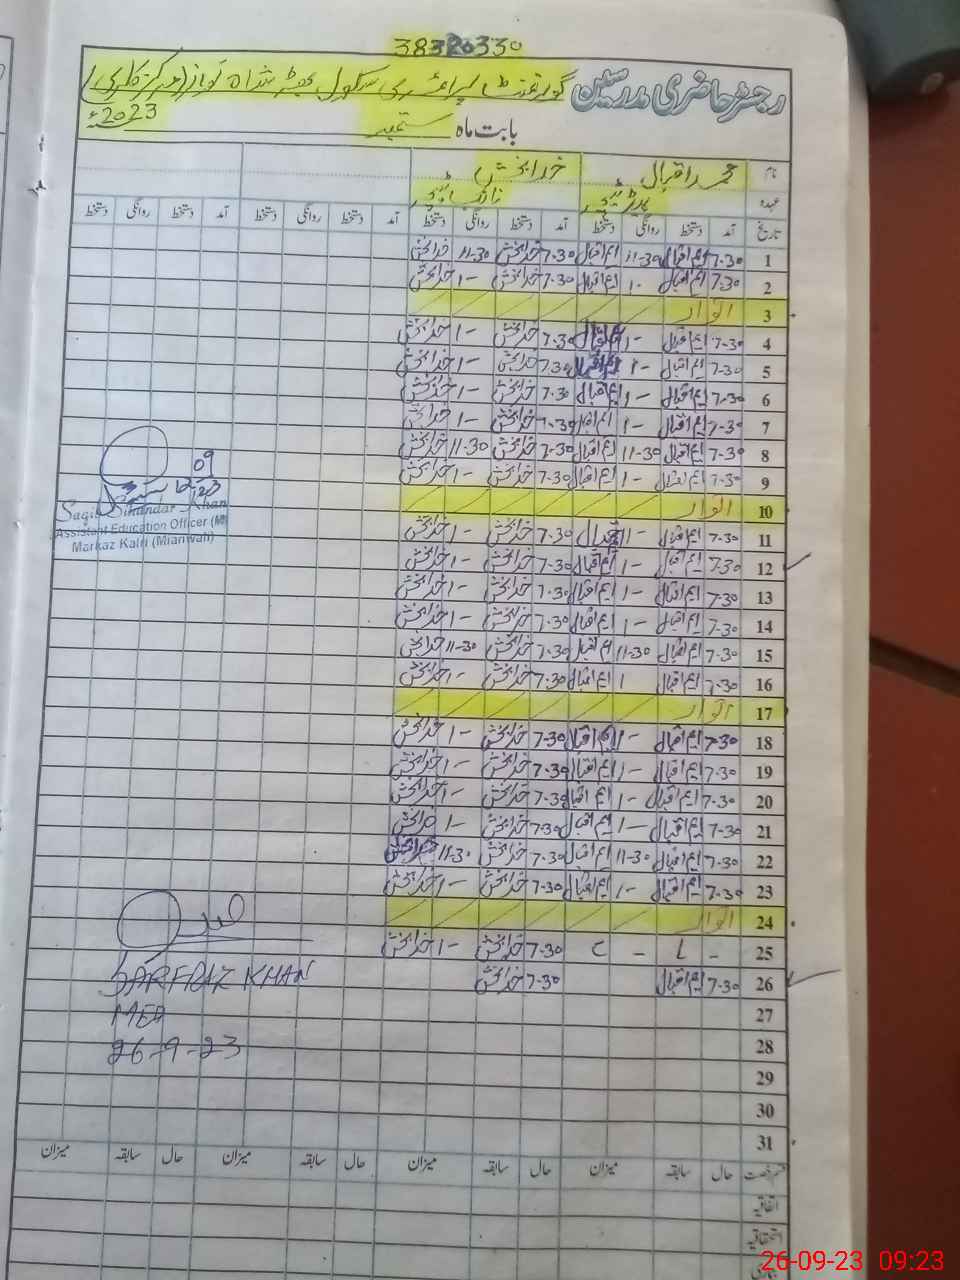 38320330
رجسٹر حاضری مدرسین گورنمنٹ پرائمری سکول شاہ نواز (مرکز کلری)
بابت ماہ ستمبر 2023ء
نام محمد اقبال خدا بخش
عہدہ ہیڈ ٹیچر نائب ٹیچر
تاریخ آمد دستخط روانگی دستخط آمد دستخط روانگی دستخط آمد دستخط روانگی دستخط آمد دستخط روانگی دستخط
1 7-30 ایم اقبال 11-30 ایم اقبال 7-30 خدا بخش 11-30 خدا بخش
2 7-30 ایم اقبال 1- ایم اقبال 7-30 خدا بخش 1- خدا بخش
3 اتوار
4 7-30 ایم اقبال 1- ایم اقبال 7-30 خدا بخش 1- خدا بخش
5 7-30 ایم اقبال 1- ایم اقبال 7-30 خدا بخش 1- خدا بخش
6 7-30 ایم اقبال 1- ایم اقبال 7-30 خدا بخش 1- خدا بخش
7 7-30 ایم اقبال 1- ایم اقبال 7-30 خدا بخش 1- خدا بخش
8 7-30 ایم اقبال 11-30 ایم اقبال 7-30 خدا بخش 11-30 خدا بخش
9 7-30 ایم اقبال 1- ایم اقبال 7-30 خدا بخش 1- خدا بخش
10 اتوار
11 7-30 ایم اقبال 1- اقبال 7-30 خدا بخش 1- خدا بخش
12 7-30 ایم اقبال 1- ایم اقبال 7-30 خدا بخش 1- خدا بخش
13 7-30 ایم اقبال 1- ایم اقبال 7-30 خدا بخش 1- خدا بخش
14 7-30 ایم اقبال 1- ایم اقبال 7-30 خدا بخش 1- خدا بخش
15 7-30 ایم اقبال 11-30 ایم اقبال 7-30 خدا بخش 11-30 خدا بخش
16 7-30 ایم اقبال 1 ایم اقبال 7-30 خدا بخش 1- خدا بخش
17 اتوار
18 7-30 ایم اقبال 1- ایم اقبال 7-30 خدا بخش 1- خدا بخش
19 7-30 ایم اقبال 1- ایم اقبال 7-30 خدا بخش 1- خدا بخش
20 7-30 ایم اقبال 1- ایم اقبال 7-30 خدا بخش 1- خدا بخش
21 7-30 ایم اقبال 1- ایم اقبال 7-30 خدا بخش 1- خدا بخش
22 7-30 ایم اقبال 11-30 ایم اقبال 7-30 خدا بخش 11-30 خدا بخش
23 7-30 ایم اقبال 1- ایم اقبال 7-30 خدا بخش 1- خدا بخش
24 اتوار
25 - L - C 7-30 خدا بخش 1- خدا بخش
26 7-30 ایم اقبال 7-30 خدا بخش
27
28
29
30
31
قسم رخصت حال سابقہ میزان حال سابقہ میزان حال سابقہ میزان حال سابقہ میزان
اتفاقیہ
استحقاقیہ
09
Saqib Sikandar Khan
Assistant Education Officer (M)
Markaz Kalri (Mianwali)
SARFRAZ KHAN
MEA
26-9-23
26-09-23 09:23